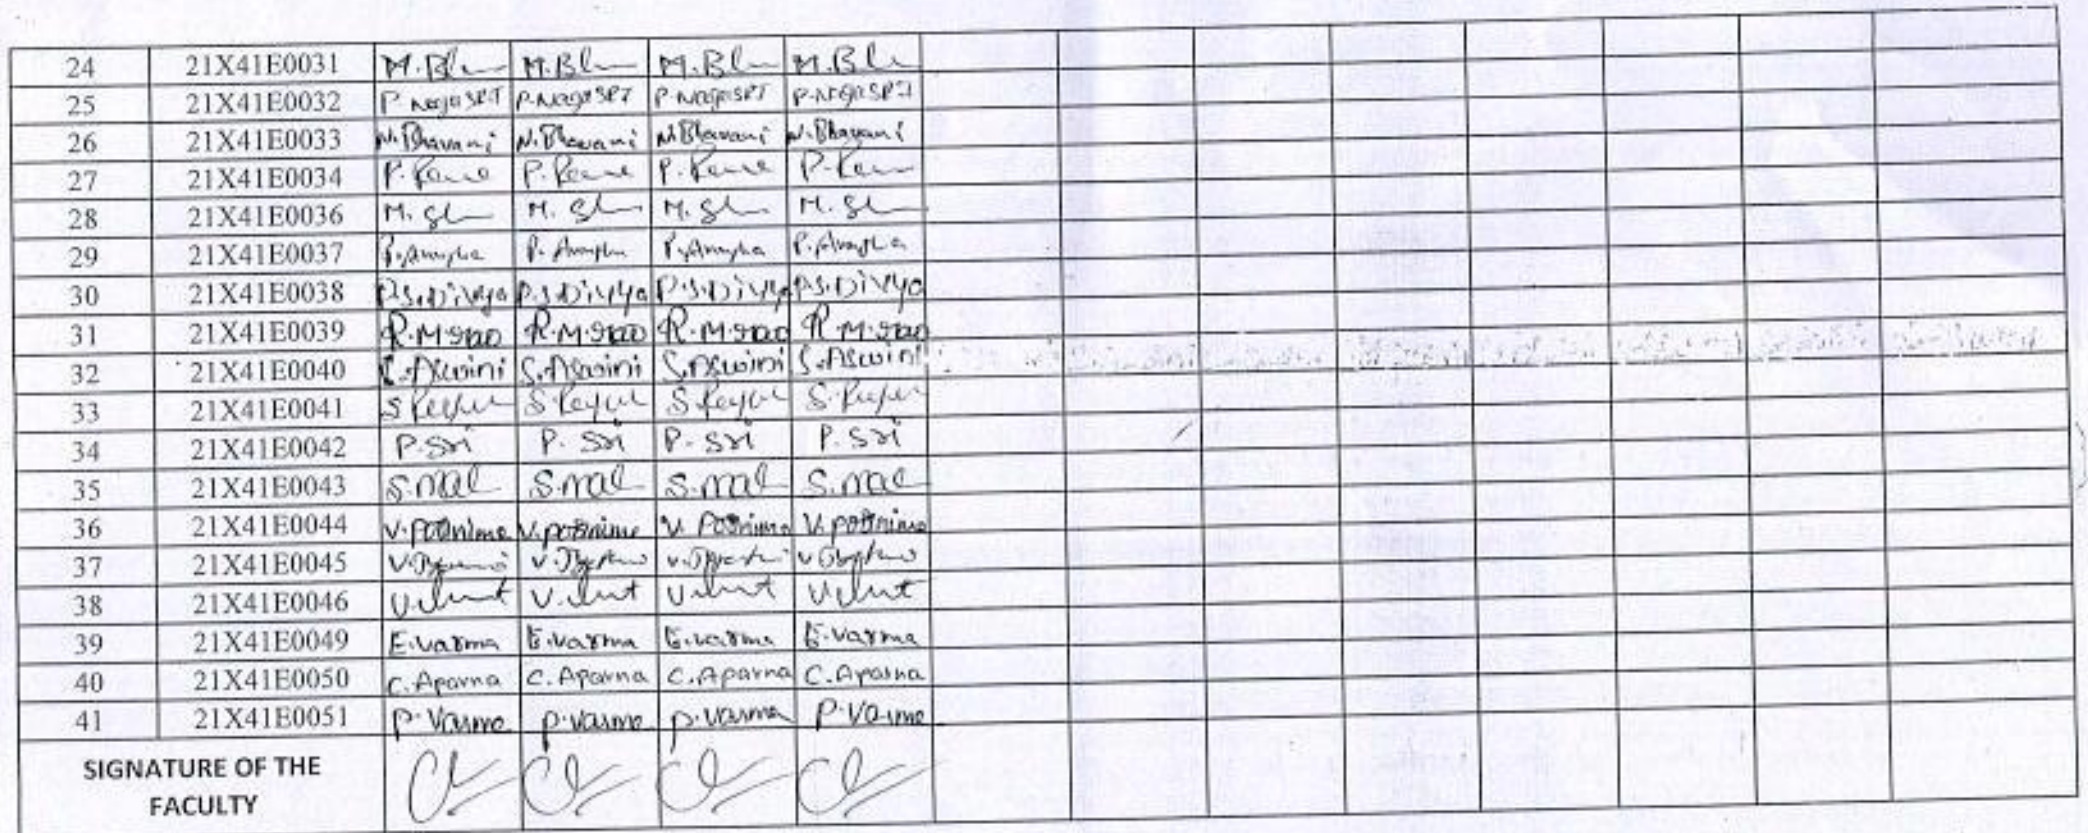 24 21X41E0031 M.Bl M.Bl M.Bl M.Bl
25 21X41E0032 P.NagaSRI P.NagaSRI P.NagaSRI P.NagaSRI
26 21X41E0033 N.Bhavani N.Bhavani N.Bhavani N.Bhavani
27 21X41E0034 P. P. P. P.
28 21X41E0036 M. M. M. M.
29 21X41E0037 P. P. P. P.
30 21X41E0038 P.S.Divya P.S.Divya P.S.Divya P.S.Divya
31 21X41E0039 R.M.Rao R.M.Rao R.M.Rao R.M.Rao
32 21X41E0040 S.Aswini S.Aswini S.Aswini S.Aswini
33 21X41E0041 S S S S
34 21X41E0042 P.Sri P.Sri P.Sri P.Sri
35 21X41E0043 S.mal S.mal S.mal S.mal
36 21X41E0044 V.Poornima V.poornima V.Poornima V.poornima
37 21X41E0045 V. V. V. V.
38 21X41E0046
39 21X41E0049 E.varma E.varma E.varma E.varma
40 21X41E0050 C.Aparna C.Aparna C.Aparna C.Aparna
41 21X41E0051 P.Varma P.Varma P.Varma P.Varma
SIGNATURE OF THE
FACULTY